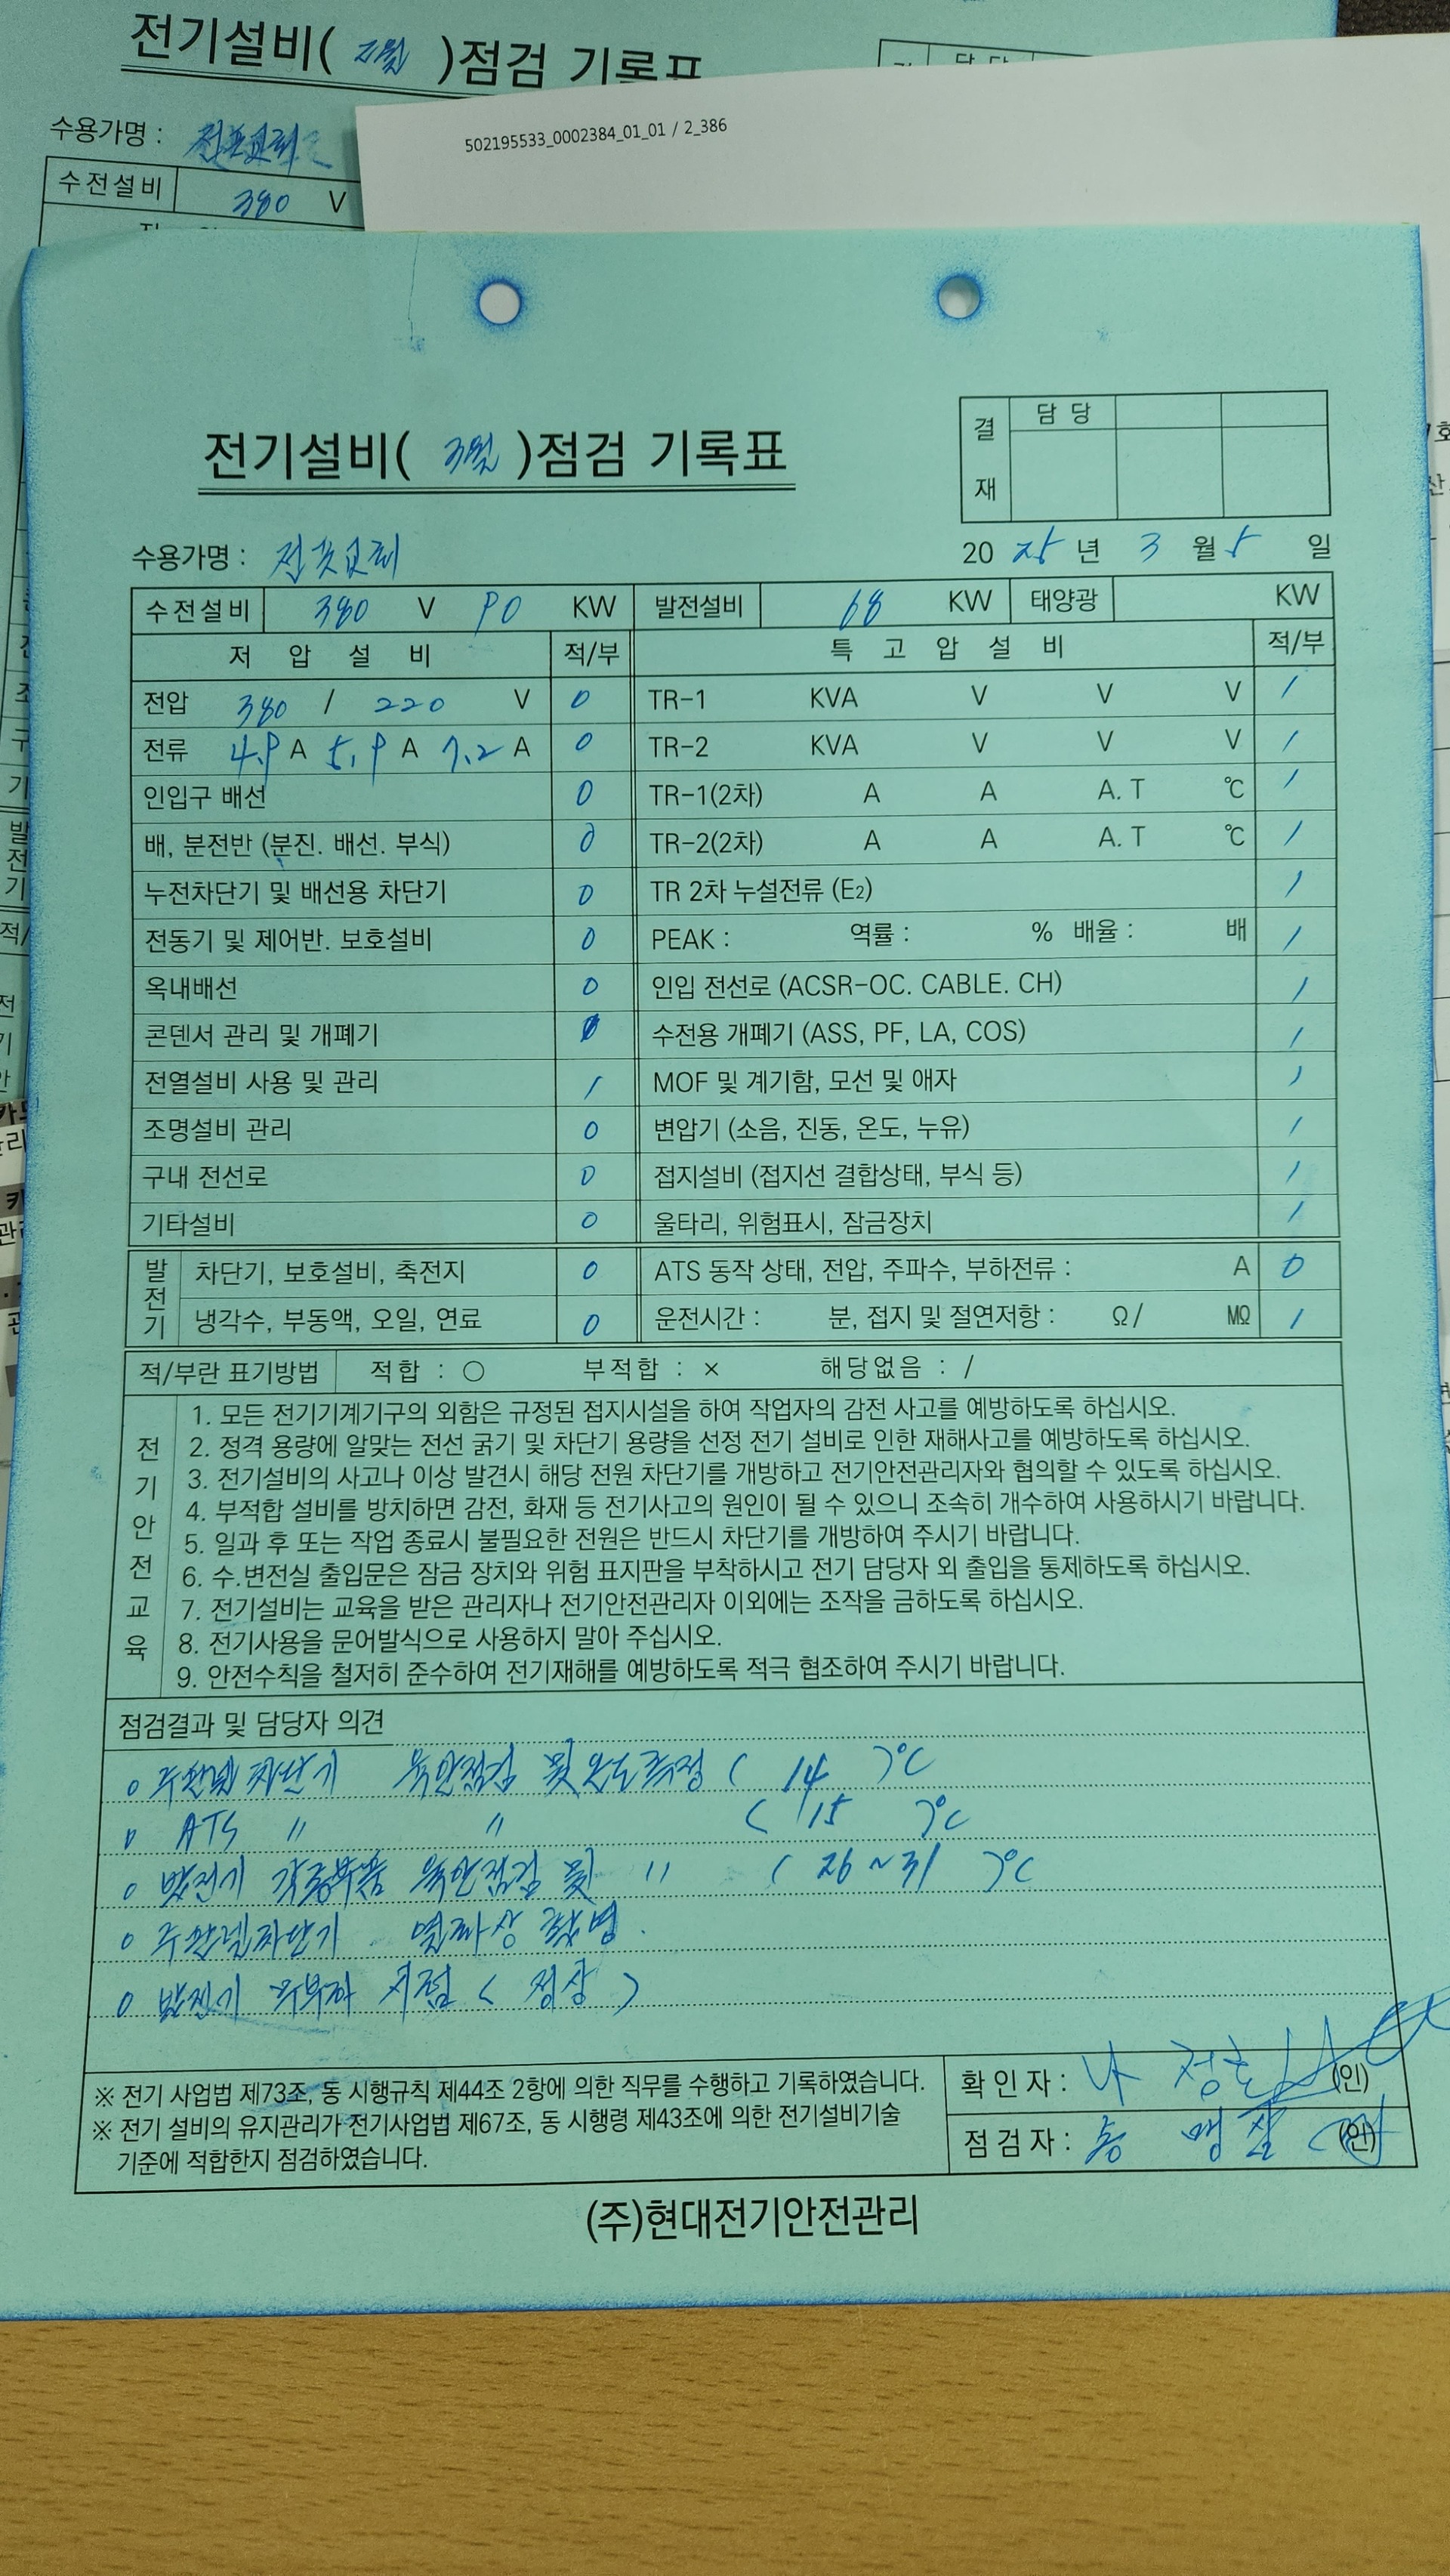 전기설비( 2월 )점검 기록표
담 당
수용가명 : 전포교회
수전설비 380 V
502195533_0002384_01_01 / 2_386
전기설비( 3월 )점검 기록표
결재 담 당
수용가명 : 전포교회
20 25 년 3 월 5 일
수전설비 380 V 90 KW 발전설비 68 KW 태양광 KW
저 압 설 비 적/부 특 고 압 설 비 적/부
전압 380 / 220 V 0 TR-1 KVA V V V /
전류 4.9 A 5.9 A 7.2 A 0 TR-2 KVA V V V /
인입구 배선 0 TR-1(2차) A A A. T ℃ /
배, 분전반 (분진. 배선. 부식) 0 TR-2(2차) A A A. T ℃ /
누전차단기 및 배선용 차단기 0 TR 2차 누설전류 (E₂) /
전동기 및 제어반. 보호설비 0 PEAK : 역률 : % 배율 : 배 /
옥내배선 0 인입 전선로 (ACSR-OC. CABLE. CH) /
콘덴서 관리 및 개폐기 수전용 개폐기 (ASS, PF, LA, COS) /
전열설비 사용 및 관리 / MOF 및 계기함, 모선 및 애자 /
조명설비 관리 0 변압기 (소음, 진동, 온도, 누유) /
구내 전선로 0 접지설비 (접지선 결합상태, 부식 등) /
기타설비 0 울타리, 위험표시, 잠금장치 /
발전기 차단기, 보호설비, 축전지 0 ATS 동작 상태, 전압, 주파수, 부하전류 : A 0
냉각수, 부동액, 오일, 연료 0 운전시간 : 분, 접지 및 절연저항 : Ω / MΩ /
적/부란 표기방법 적합 : ○ 부적합 : × 해당없음 : /
전기안전교육
1. 모든 전기기계기구의 외함은 규정된 접지시설을 하여 작업자의 감전 사고를 예방하도록 하십시오.
2. 정격 용량에 알맞는 전선 굵기 및 차단기 용량을 선정 전기 설비로 인한 재해사고를 예방하도록 하십시오.
3. 전기설비의 사고나 이상 발견시 해당 전원 차단기를 개방하고 전기안전관리자와 협의할 수 있도록 하십시오.
4. 부적합 설비를 방치하면 감전, 화재 등 전기사고의 원인이 될 수 있으니 조속히 개수하여 사용하시기 바랍니다.
5. 일과 후 또는 작업 종료시 불필요한 전원은 반드시 차단기를 개방하여 주시기 바랍니다.
6. 수.변전실 출입문은 잠금 장치와 위험 표지판을 부착하시고 전기 담당자 외 출입을 통제하도록 하십시오.
7. 전기설비는 교육을 받은 관리자나 전기안전관리자 이외에는 조작을 금하도록 하십시오.
8. 전기사용을 문어발식으로 사용하지 말아 주십시오.
9. 안전수칙을 철저히 준수하여 전기재해를 예방하도록 적극 협조하여 주시기 바랍니다.
점검결과 및 담당자 의견
o 주판넬 차단기 육안점검 및 온도측정 ( 14 )℃
o ATS 〃 〃 ( 15 )℃
o 발전기 각종부품 육안점검 및 〃 ( 26 ~ 31 )℃
o 주판넬차단기 열화상 촬영.
o 발전기 무부하 시험 ( 정상 )
※ 전기 사업법 제73조, 동 시행규칙 제44조 2항에 의한 직무를 수행하고 기록하였습니다.
※ 전기 설비의 유지관리가 전기사업법 제67조, 동 시행령 제43조에 의한 전기설비기술
기준에 적합한지 점검하였습니다.
확 인 자 : 나 정호 (인)
점 검 자 : (인)
(주)현대전기안전관리